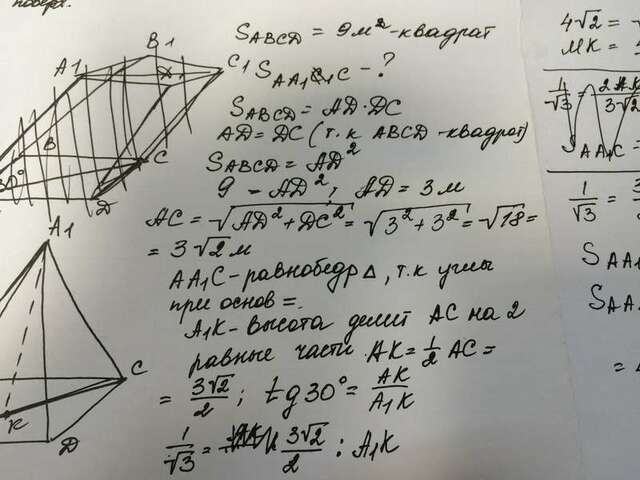 поверх.
S ABCD = 9м² - квадрат
S AA1C1C - ?
S ABCD = AD · DC
AD = DC (т.к ABCD - квадрат)
S ABCD = AD²
9 - AD² ; AD = 3 м
AC = √AD² + DC² = √3² + 3² = √18 =
= 3√2 м
AA1C - равнобедр △, т.к углы
при основ =.
A1K - высота делит AC на 2
равные части AK = 1/2 AC =
= 3√2/2 ; tg 30° = AK/A1K
1/√3 = 3√2/2 : A1K
A1
B1
C1
B
30°
C
D
A1
C
K
D
4√2 =
MK =
1/√3 =
3√2
S AA1C =
1/√3 =
S AA1
S AA
=